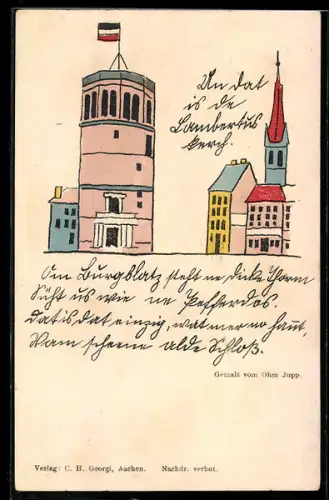 Un dat
is de
Lambertus
kerch.
Om Burgblatz steht ne dicke Thorm
Süht us wie ne Pefferdos.
Dat is dat einzig, wat mer no hant,
Vam scheene alde Schloß.
Gemalt vom Ohm Jupp.
Verlag: C. H. Georgi, Aachen. Nachdr. verbot.